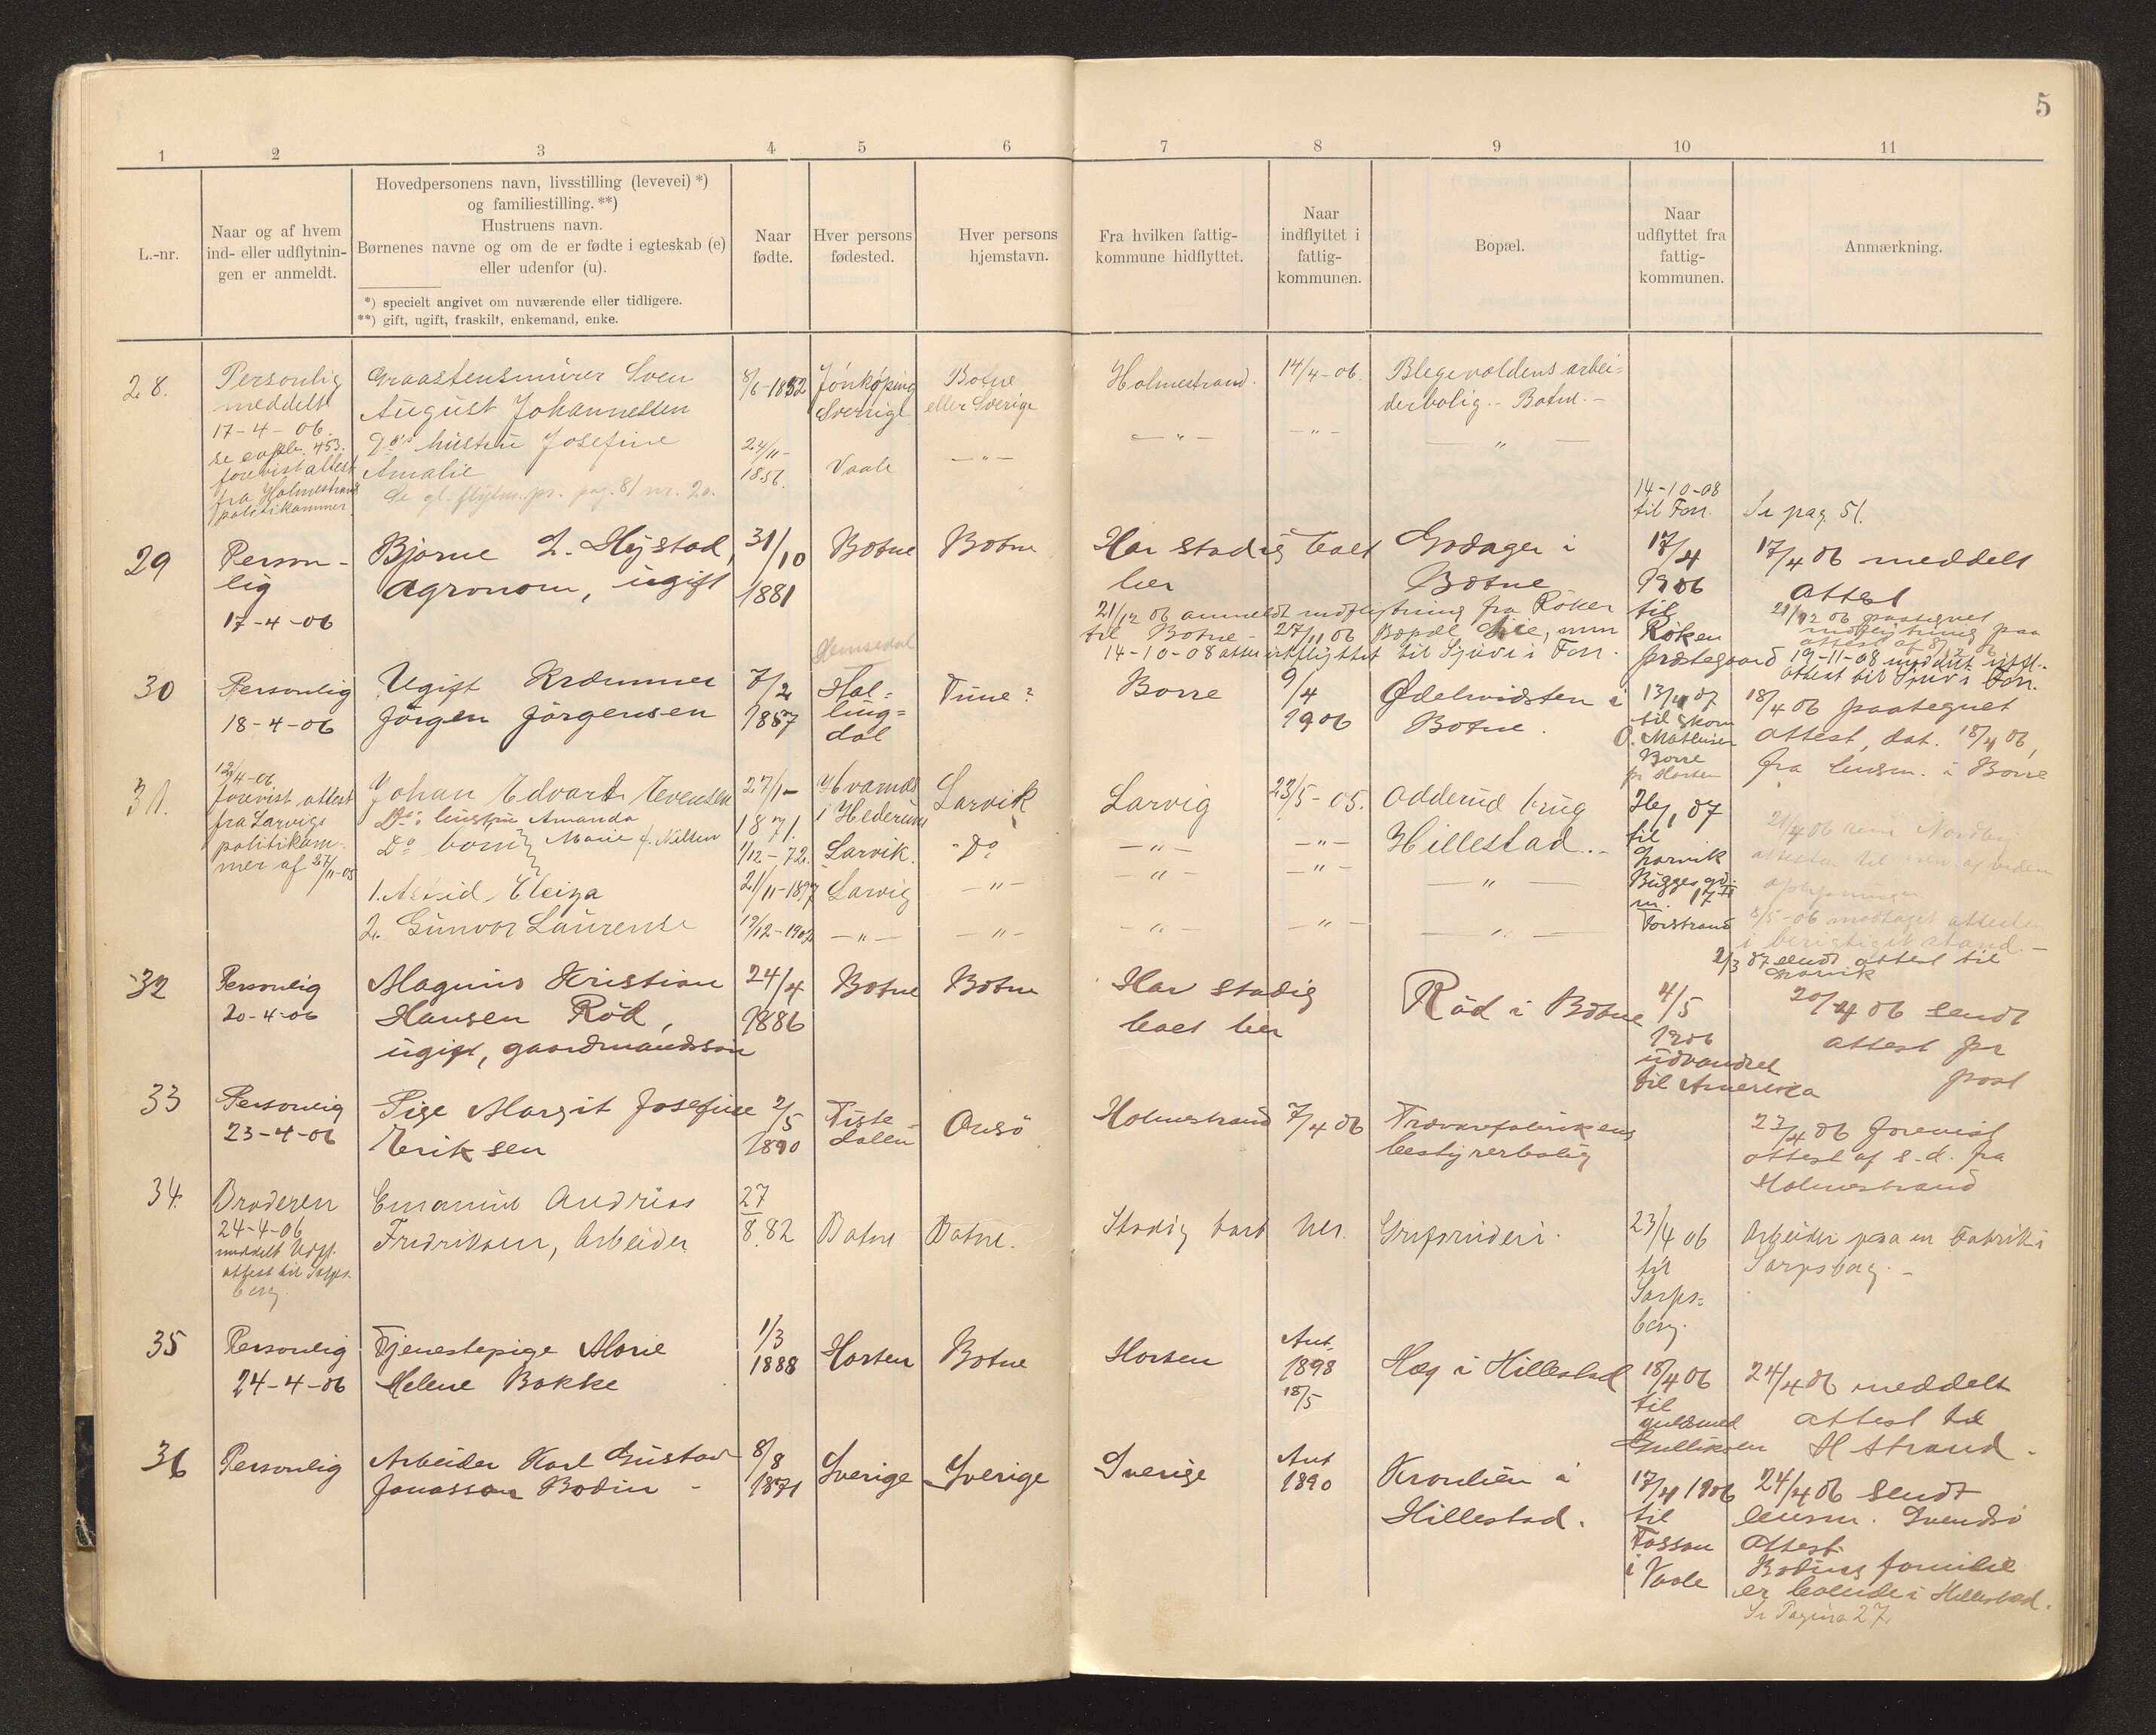 5
1 2 3 4 5 6 7 8 9 10 11
L.-nr.
Naar og af hvem
ind- eller udflytnin-
gen er anmeldt.
Hovedpersonens navn, livsstilling (levevei) *)
og familiestilling. **)
Hustruens navn.
Børnenes navne og om de er fødte i egteskab (e)
eller udenfor (u).
*) specielt angivet om nuværende eller tidligere.
**) gift, ugift, fraskilt, enkemand, enke.
Naar
fødte.
Hver persons
fødested.
Hver persons
hjemstavn.
Fra hvilken fattig-
kommune hidflyttet.
Naar
indflyttet i
fattig-
kommunen.
Bopæl.
Naar
udflyttet fra
fattig-
kommunen.
Anmærkning.
28.
Personlig
meddelt
17-4-06.
453.
forevist attest
fra Holmestrand
politikammer
Graastensmurer Sven
August Johannessen
Do's hustru Josefine
Amalie
pag. 81 nr. 20.
8/6-1852
24/11-
1856.
Jönköping
Sverrige
Vaale
Botne
eller Sverige
— " —
Holmestrand.
— " —
14/4-06.
— " —
Blegevoldens arbei-
derbolig. - Botne. -
— " —
14-10-08
til Forr.
Se pag. 51.
29
Person-
lig
17-4-06
Bjarne L. Hystad,
agronom, ugift
31/10
1881
Botne
Botne
Har stadig boet
her
Godager i
Botne
17/4
1906
til
Røken
præstegaard
17/4 06 meddelt
attest
21/12 06 anmeldt indflytning fra Røken
til Botne - 27/11 06 Bopæl
14-10-08 atter udflyttet til i Forr.
21/12 06 paategnet
indflytning paa
attest af 8/12 06
19-11-08 meddelt utfl.-
attest til i Forr.
30
Personlig
18-4-06
Ugift Kræmmer
Jörgen Jörgensen
7/2
1857
Hemsedal
Hal-
ling-
dal
Tune?
Borre
9/4
1906
i
Botne.
13/4 07
til skom
O. Mathisen
Borre
pr Horten
18/4 06 paategnet
attest, dat. 18/4 06,
fra lensm. i Borre
31.
12/4-06
forevist attest
fra Larvigs
politikam-
mer af 27/11-05
Johan Edvart Evensen
Do: hustru Amanda
Marie f. Nilsen
Do börn
1. Astrid Eliza
2. Gunvor Laurense
27/1-
1871.
1/12-72.
21/11-1897
19/12-1902
Hvarnes
i Hedrum
Larvik.
Larvig
— " —
Larvik
" Do
— " —
— " —
Larvig
— " —
— " —
— " —
23/5-05.
— " —
— " —
— " —
Odderud brug
Hillestad. -
— " —
— " —
07
til
Larvik
Bugges gd.
m. 17
Torstrand
21/4 06
8/5-06 modtaget attesten
i berigtiget stand. -
2/3 07 sendt attest til
Larvik
32
Personlig
20-4-06
Magnus Kristian
Hansen Röd,
ugift, gaardmandssön
24/4
1886
Botne
Botne
Har stadig
boet her
Röd i Botne
4/5
1906
udvandret
til Amerika
20/4 06 sendt
attest pr
post
33
Personlig
23-4-06
Pige Margit Josefine
Eriksen
2/5
1890
Tiste-
dalen
Onsö
Holmestrand
7/4 06
Trævarefabrikens
bestyrerbolig
23/4 06 forevist
attest af s. d. fra
Holmestrand
34.
Broderen
24-4-06
meddelt Udfl.
attest til Sarps-
berg.
Emanuel Andreas
Fredriksen, Arbeider
27
8. 82
Botne
Botne.
Stadig boet her.
23/4 06
til
Sarps-
berg.
Arbeider paa en Fabrik i
Sarpsborg. -
35
Personlig
24-4-06
Tjenestepige Marie
Helene Bakke
1/3
1888
Horten
Botne
Horten
Ant.
1898
18/5
Hæg i Hillestad
18/4 06
til
guldsmed
Gulliksen
24/4 06 meddelt
attest til
H strand.
36
Personlig
Arbeider Karl Gustav
Jonasson Bodin -
8/8
1871
Sverige
Sverige
Sverige
Ant
1890
Kronlien i
Hillestad.
17/4 1906
til
Fossan
i Vaale
24/4 06 sendt
lensm. Svendsö
attest.
Bodins familie
er boende i Hillestad.
Se Pagina 27.